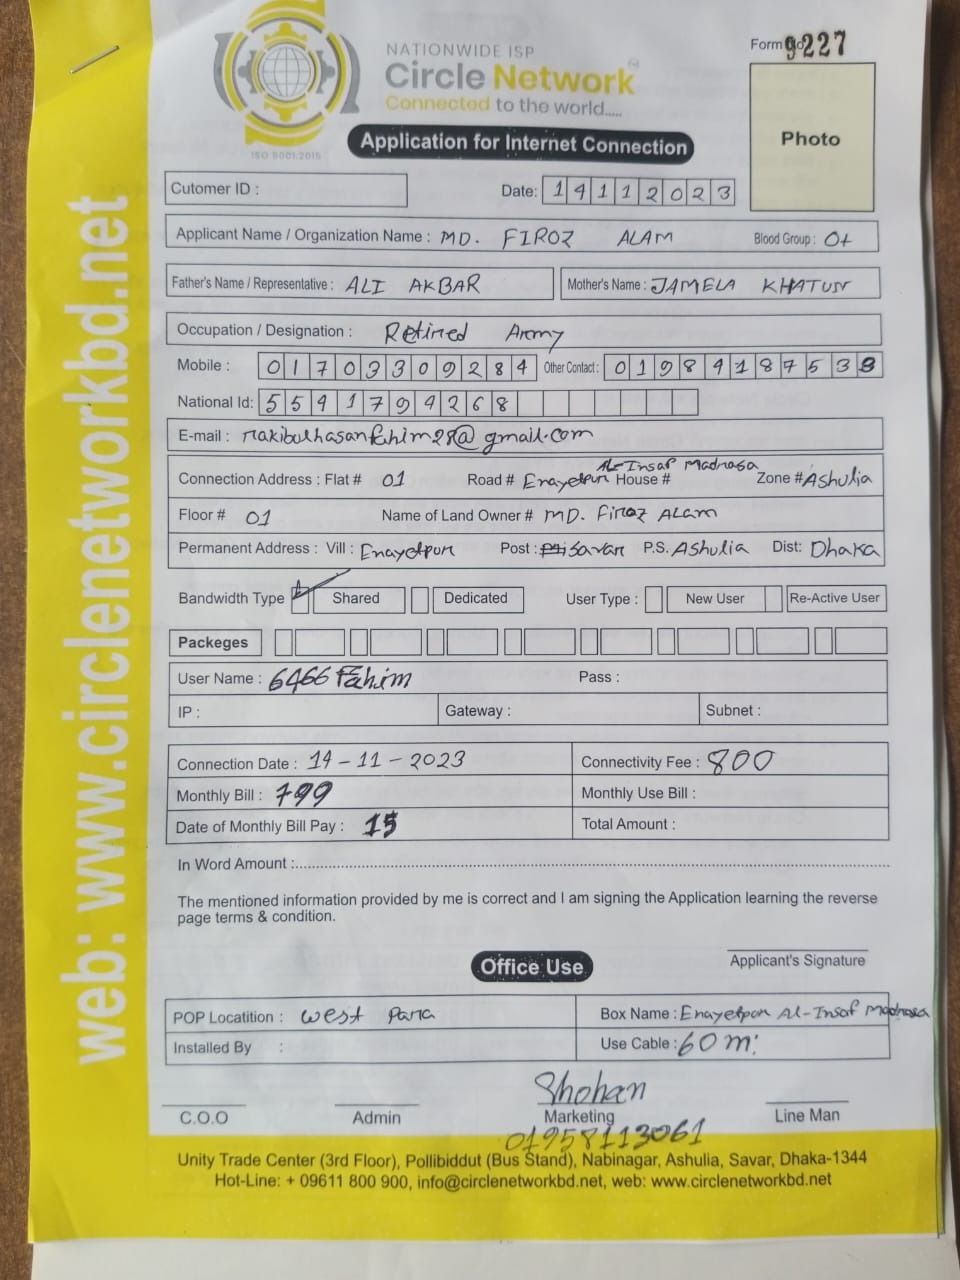 web: www.circlenetworkbd.net
NATIONWIDE ISP
Circle Network
Connected to the world.....
ISO 9001:2015
Form No 9227
Application for Internet Connection
Photo
Cutomer ID :
Date: 14112023
Applicant Name / Organization Name : MD. FIROZ ALAM Blood Group : O+
Father's Name / Representative : ALI AKBAR Mother's Name : JAMELA KHATUN
Occupation / Designation : Retired Army
Mobile : 01703309284 Other Contact : 01984187538
National Id: 5541794268
E-mail : rakibulhasanfahim28@gmail.com
Connection Address : Flat # 01 Road # Enayetpur House # Al-Insaf Madrasa Zone # Ashulia
Floor # 01 Name of Land Owner # MD. Firoz ALAM
Permanent Address : Vill : Enayetpur Post : Savar P.S. Ashulia Dist: Dhaka
Bandwidth Type Shared Dedicated User Type : New User Re-Active User
Packeges
User Name : 6466 Fahim Pass :
IP : Gateway : Subnet :
Connection Date : 14-11-2023 Connectivity Fee : 800
Monthly Bill : 799 Monthly Use Bill :
Date of Monthly Bill Pay : 15 Total Amount :
In Word Amount :
The mentioned information provided by me is correct and I am signing the Application learning the reverse
page terms & condition.
Applicant's Signature
Office Use
POP Locatition : West Para Box Name : Enayetpur Al-Insaf Madrasa
Installed By : Use Cable : 60 m:
Shohan
C.O.O Admin Marketing Line Man
01958113061
Unity Trade Center (3rd Floor), Pollibiddut (Bus Stand), Nabinagar, Ashulia, Savar, Dhaka-1344
Hot-Line: + 09611 800 900, info@circlenetworkbd.net, web: www.circlenetworkbd.net